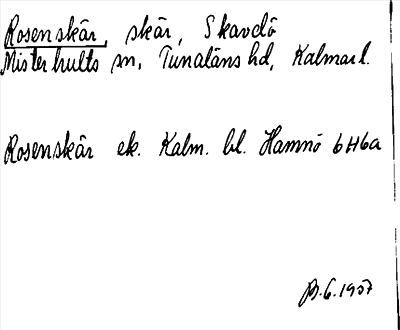 Rosenskär, skär, Skavdö
Misterhults sn, Tunaläns hd, Kalmar l.
Rosenskär ek. Kalm. bl. Hamnö 6H6a
6.1937